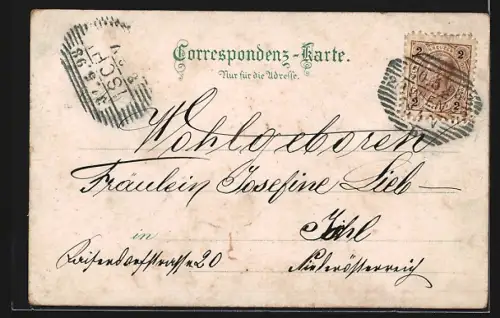 Correspondenz-Karte.
Nur für die Adresse.
2 2
2 2
ISCHL
98
Wohlgeboren
Fräulein Josefine Lieb-
Ischl
in
Kaiserdorfstrasse 20
Niederösterreich